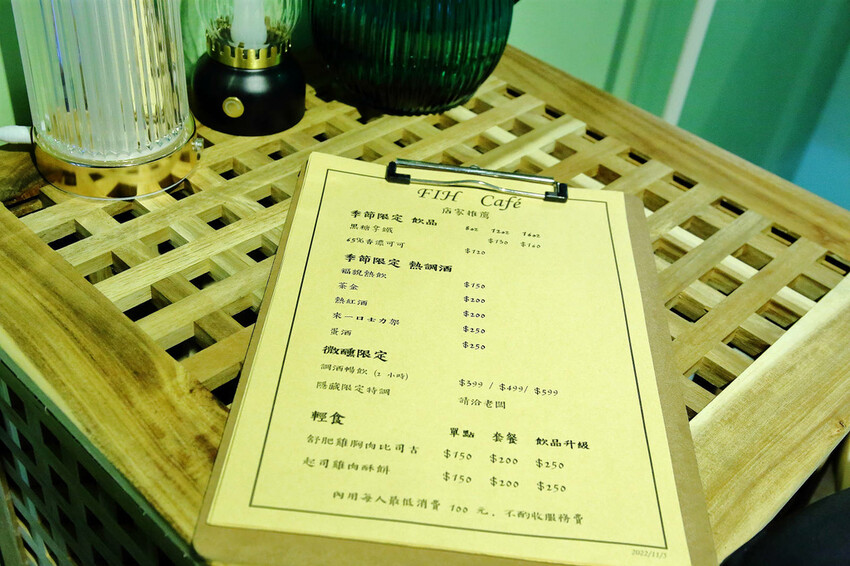 FIH Café
店家推薦
季節限定 飲品 8oz 12oz 16oz
黑糖拿鐵 $150 $160
65%香濃可可 $120
季節限定 熱調酒
福貌熱飲 $150
茶金 $200
熱紅酒 $200
來一口士力郭 $250
蛋酒 $250
微醺限定
調酒暢飲 (2 小時) $399 / $499/ $599
隱藏限定特調 請洽老闆
輕食 單點 套餐 飲品升級
舒肥雞胸肉比司吉 $150 $200 $250
起司雞肉酥餅 $150 $200 $250
內用每人最低消費 100 元、不酌收服務費
2022/11/5